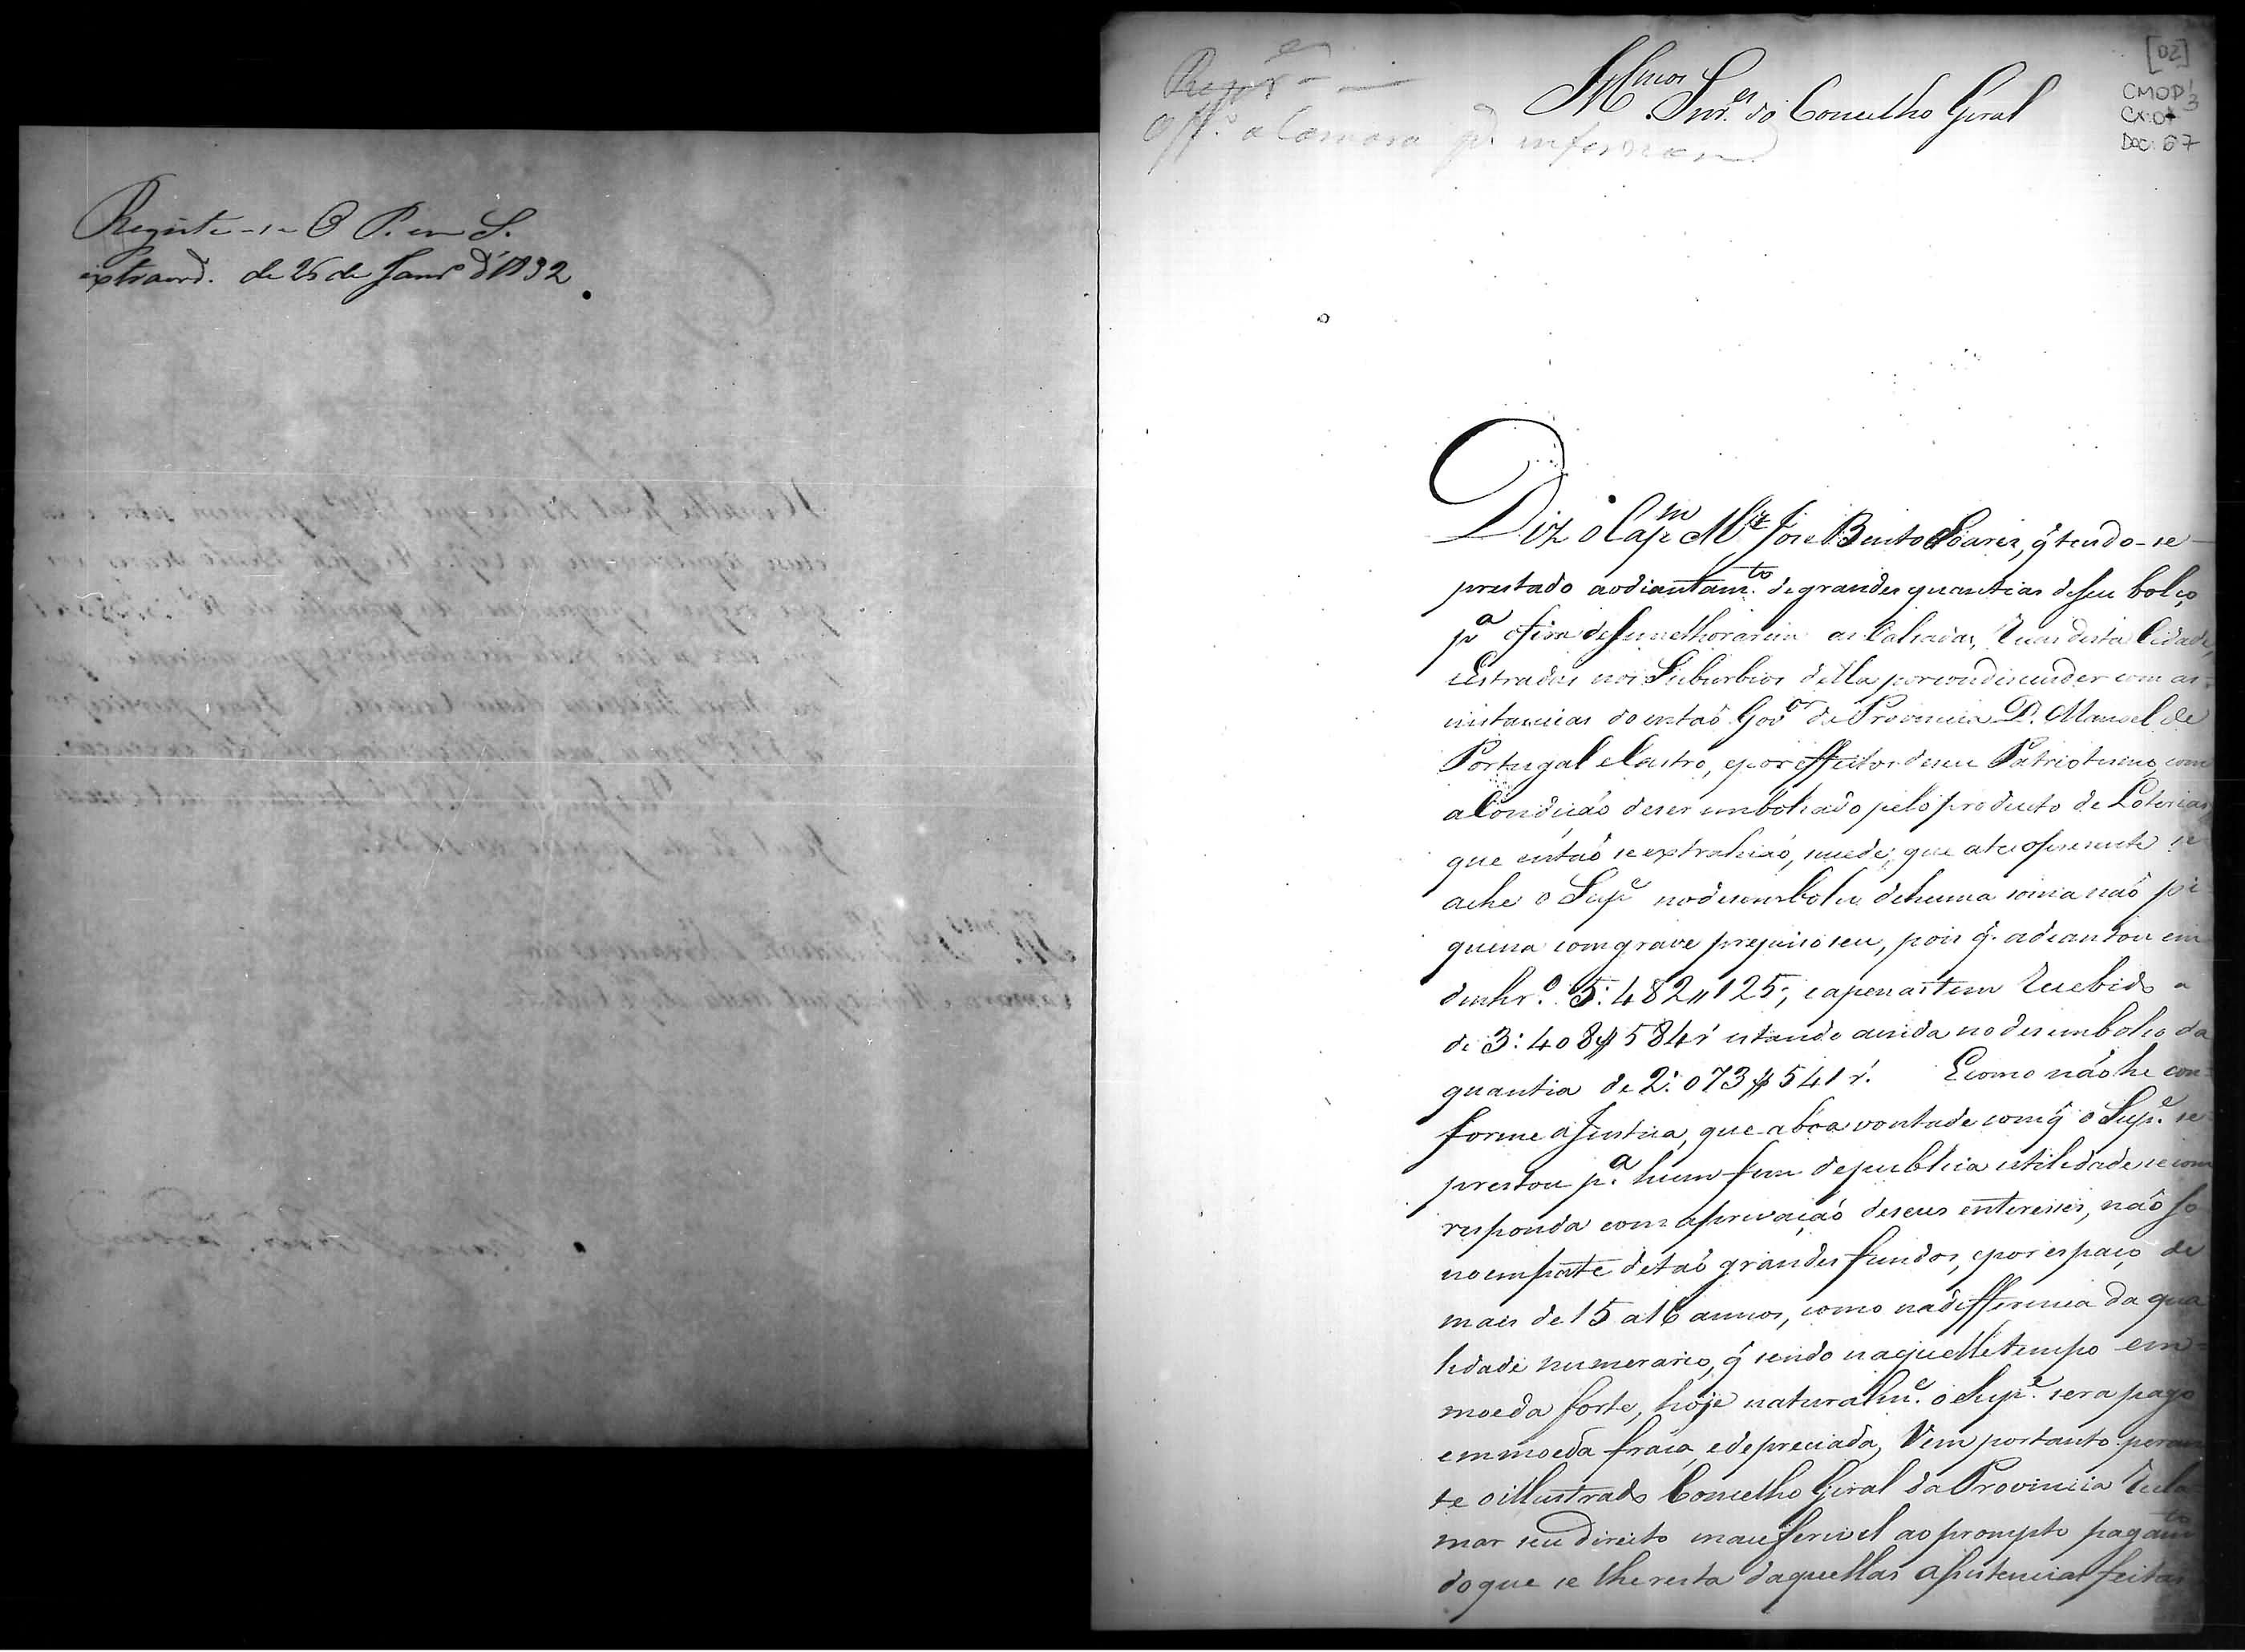 Registe-se O P. em S.
extraord. de 26 de Janr.º d'1832
[02]
CMOP
Cx:
Doc: 67
Off.º a Camara p.ª informar
Illmos Snr.es do Concelho Geral
Diz o Cap.m M.or Jose Bento Soares, q̃ tendo-se
prestado ao diantam.to de grandes quantias de seu bolço
p.a o fim de se melhorarem as Calsadas, Ruas desta Cidade,
Estradas nos Suburbios della por condescender com as
instancias do entaõ Gov.or da Provincia D. Manoel de
Portugal e Castro, e por effeitos de seu Patriotismo, com
a Condiçaõ de ser embolsado pelo producto de Loterias,
que entaõ se extrahiaõ, succede, que ate o presente se
ache o Sup.e no desembolso de huma soma naõ pe
quena com grave prejuiso seu, pois q̃ adeantou em
dinhr.o 5:482$125, e apenas tem recebido a
de 3:408$584 r.s estando ainda no desembolso da
quantia de 2:073$541 r.s E como naõ he con=
forme a Justiça, que a boa vontade com q̃ o Sup.e se
prestou p.a hum fim de publica utilidade se com
responda com a privaçaõ de seus enteresses, naõ só
no empate de taõ grandes fundos, e por espaço de
mais de 15 a 16 annos, como na differença da qua
lidade numerario, q̃ sendo naquelle tempo em=
moeda forte, hoje naturalm.e o Sup.e sera pago
em moeda fraca, e depreciada, Vem portanto peran
te o illustrado Concelho Geral da Provincia recla
mar seu direito inauferivel ao prompto pagam.to
do que se lhe resta daquellas assistencias feitas